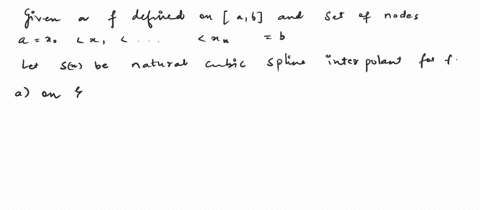 Given a f defined on [a,b] and set of nodes
a = x₀ < x₁ < . . . . < xₙ = b
Let s(x) be natural cubic spline interpolant for f.
a) on